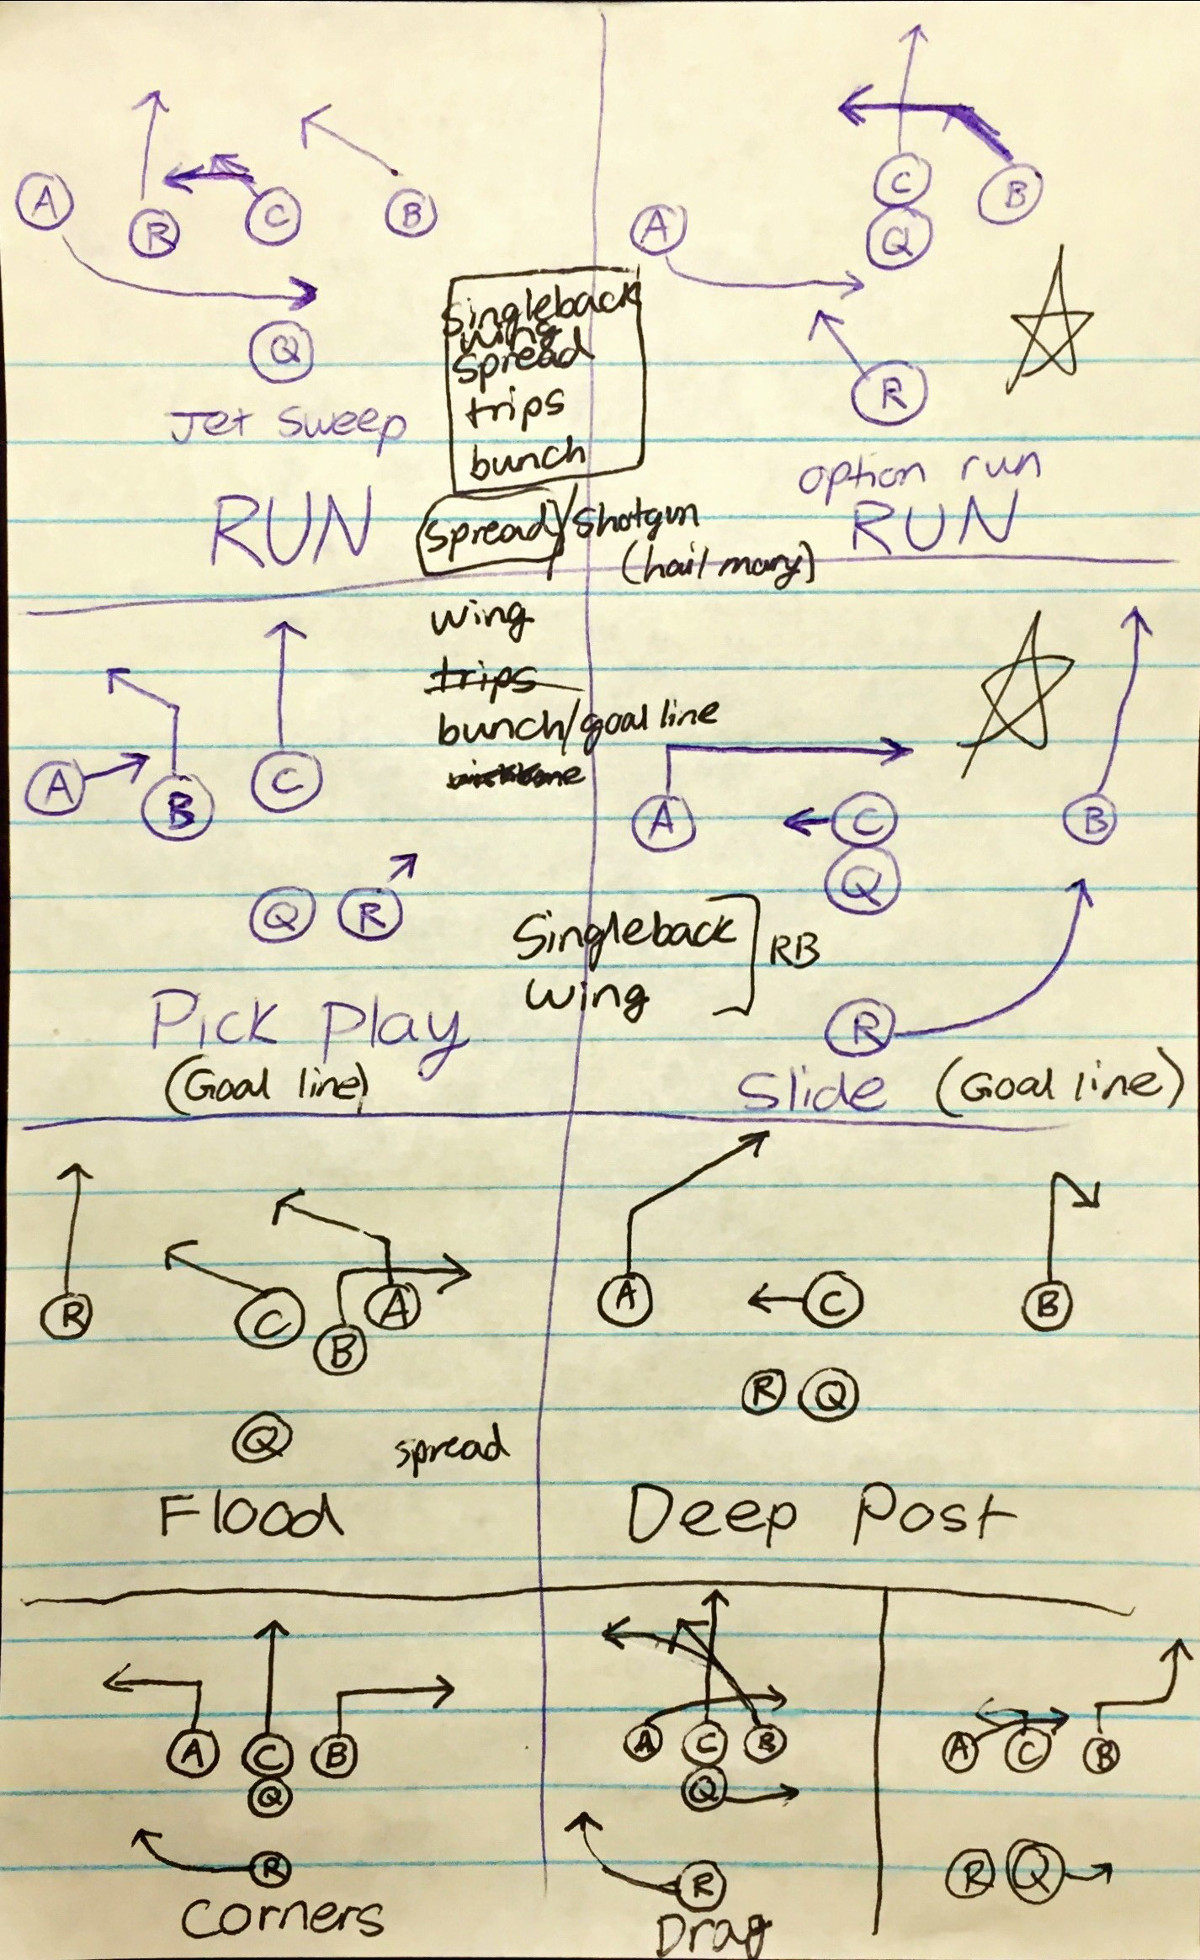 A
R
C
B
Q
Jet Sweep
RUN
C
Q
B
A
R
option run
RUN
Singleback
wing
spread
trips
bunch
Spread/Shotgun
(hail mary)
wing
trips
bunch/goal line
A
B
C
Q R
Pick Play
(Goal line)
A
C
B
Q
Singleback
wing
RB
R
Slide (Goal line)
R
C
B
A
Q
spread
Flood
A
C
B
R Q
Deep Post
A C B
Q
R
Corners
A C B
Q
R
Drag
A C B
R Q